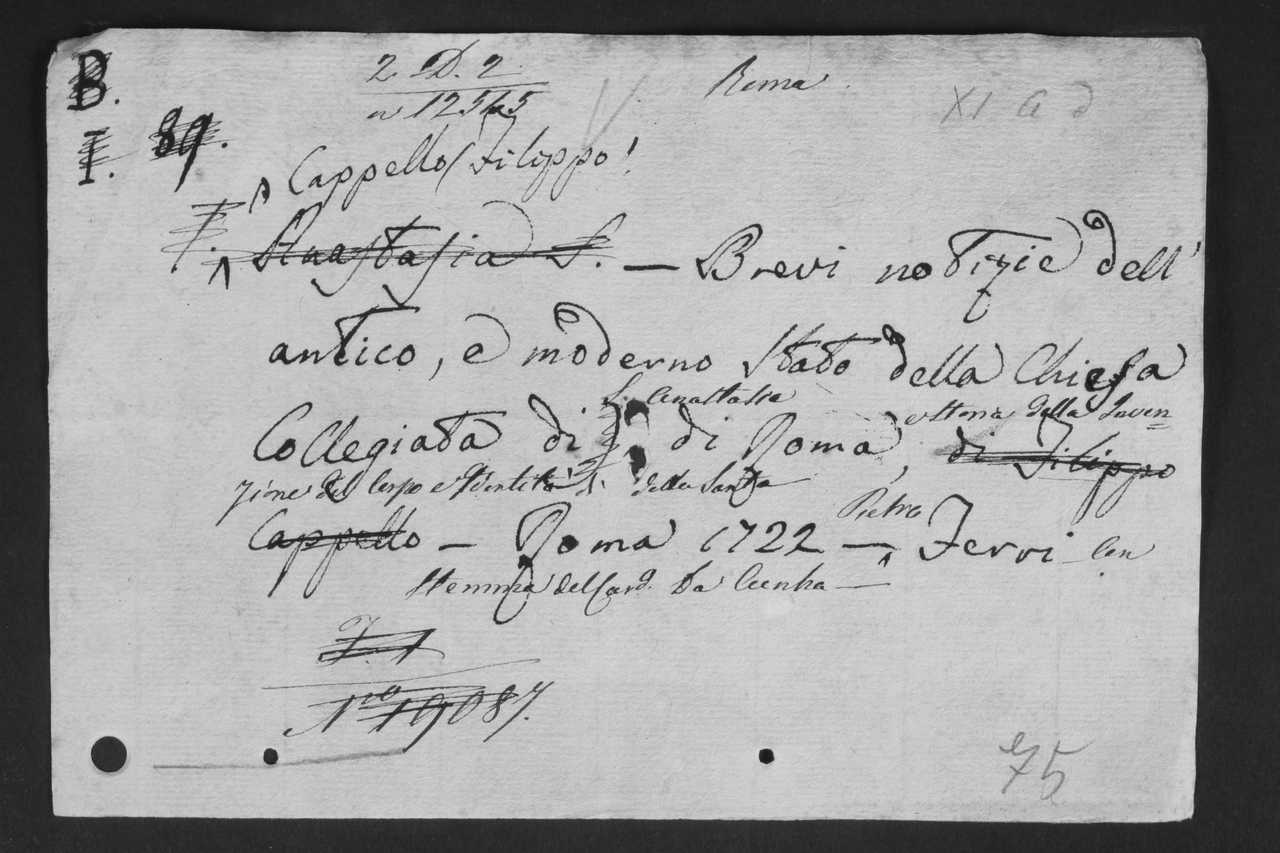 B. 2 D. 2 Roma
n 12545 XI a d
I. 89.
Cappello (Filippo)
Anastasia S. — Brevi notizie dell'
antico, e moderno Stato della Chiesa
S. Anastasia e Storia della Inven=
Collegiata di di Roma, di Filippo
zione del Corpo e Identità della Santa
Cappello — Roma 1722 — Pietro Ferri con
Stemma del Card. Da Cunha —
N.ro 19087.
75